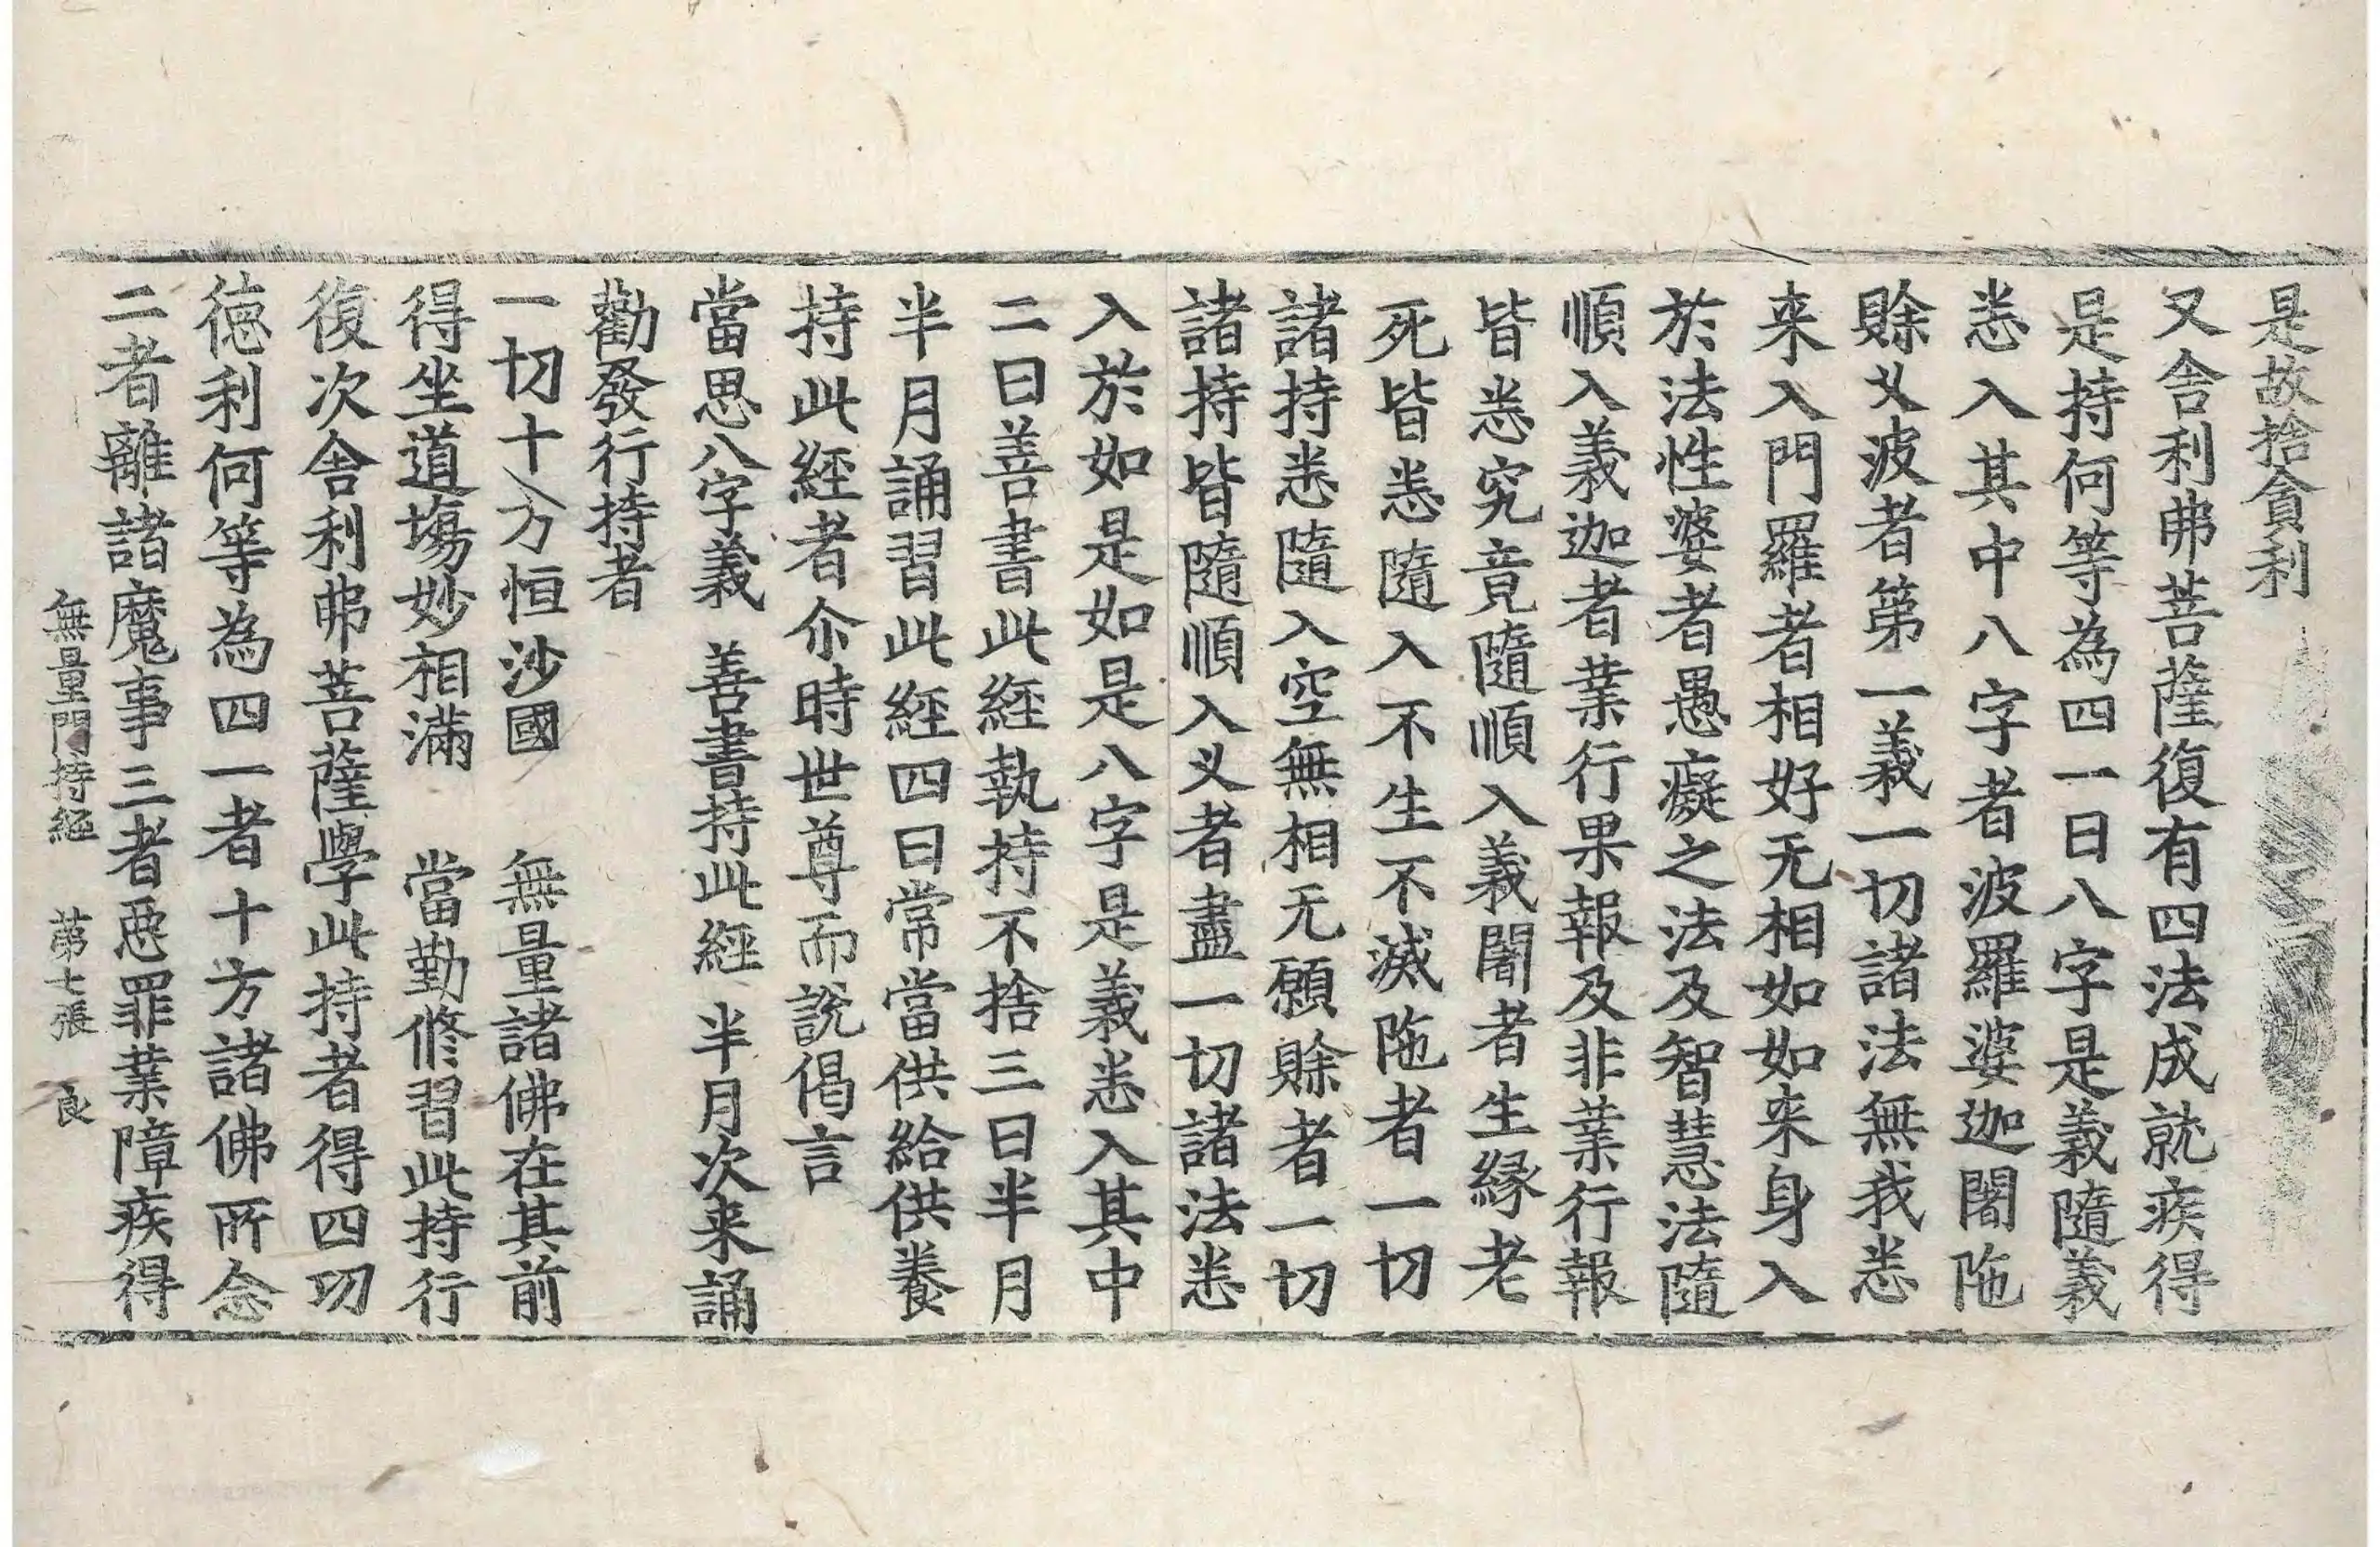 是故捨貪利
又舎利弗菩薩復有四法成就疾得
是持何等為四一日八字是義隨義
悉入其中八字者波羅婆迦闍陁
賖㸦波者第一義一切諸法無我悉
来入門羅者相好无相如如来身入
於法性婆者愚癡之法及智慧法隨
順入義迦者業行果報及非業行報
皆悉究竟隨順入義闍者生縁老
死皆悉隨入不生不滅陁者一切
諸持悉隨入空無相无願賖者一切
諸持皆隨順入㸦者盡一切諸法悉
入於如是如是八字是義悉入其中
二曰善書此經執持不捨三曰半月
半月誦習此經四曰常當供給供養
持此經者尒時世尊而說偈言
當思八字義 善書持此經 半月次来誦
勸發行持者
一切十方恒沙國 無量諸佛在其前
得坐道塲妙相滿 當勤修習此持行
復次舎利弗菩薩學此持者得四功
德利何等為四一者十方諸佛所念
二者離諸魔事三者惡罪業障疾得
無量門持經 第七張 良